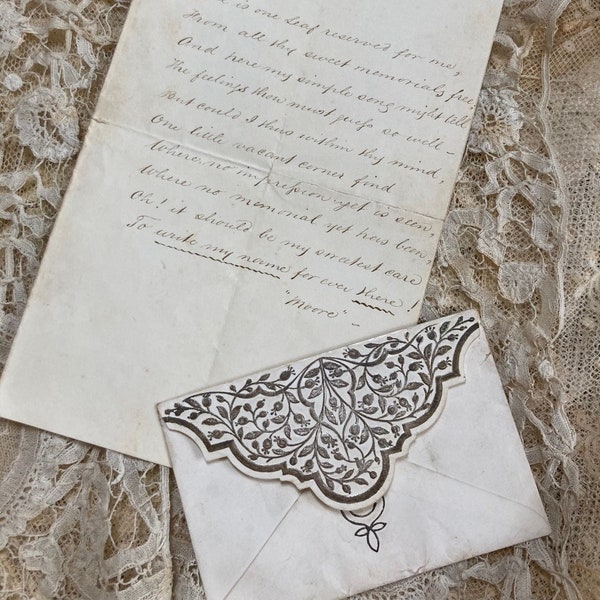 is one Leaf reserved for me,
From all thy sweet memorials free,
And here my simple song might tell
The feelings thou must guess so well –
But could I thus within thy mind,
One little vacant corner find
Where no impression yet is seen,
Where no memorial yet has been,
Oh! it should be my sweetest care
To write my name for ever there!
"Moore" –